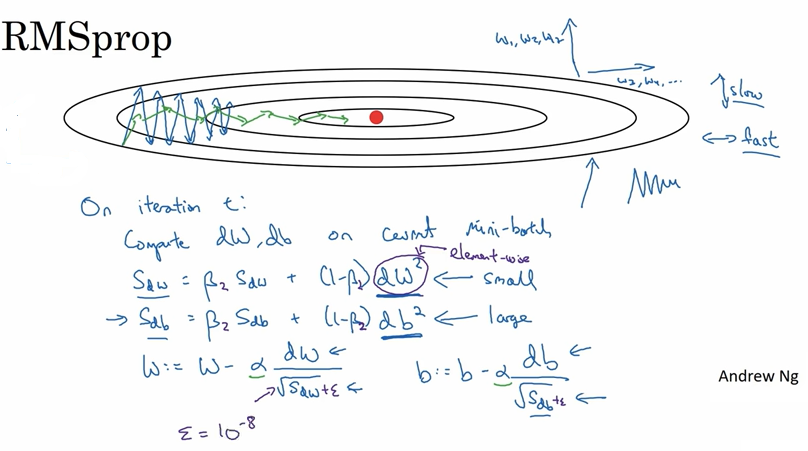 RMSprop
w₁, w₂, w₂
w₃, w₄, ...
↕ slow
↔ fast
On iteration t:
Compute dW, db on current mini-batch
element-wise
S_dw = β₂ S_dw + (1-β₂) dW² ← small
→ S_db = β₂ S_db + (1-β₂) db² ← large
W := W - α dW / √S_dw + ε ←
b := b - α db / √S_db + ε ←
Andrew Ng
ε = 10⁻⁸